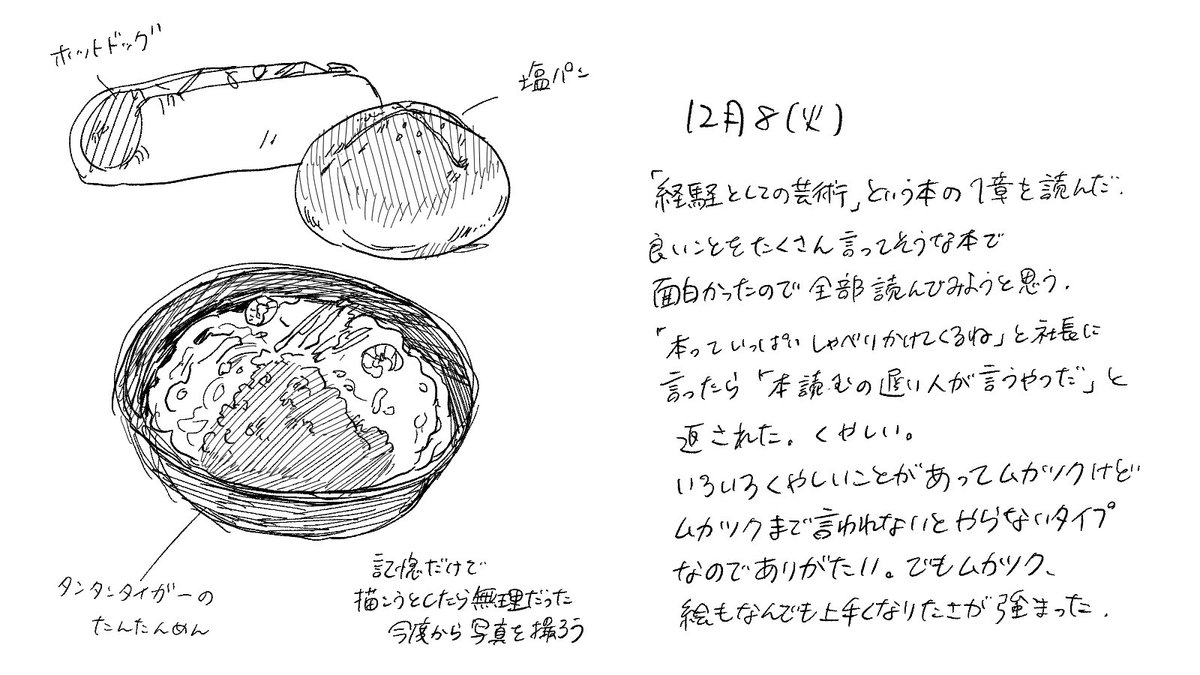 ホットドッグ
塩パン
タンタンタイガーの
たんたんめん
記憶だけで
描こうとしたら無理だった
今度から写真を撮ろう
12月8(火)
「経験としての芸術」という本の1章を読んだ.
良いことをたくさん言ってそうな本で
面白かったので全部読んでみようと思う.
「本っていっぱいしゃべりかけてくるね」と社長に
言ったら「本読むの遅い人が言うやつだ」と
返された。くやしい。
いろいろくやしいことがあってムカツクけど
ムカツクまで言われないとやらないタイプ
なのでありがたい。でもムカツク、
絵もなんでも上手くなりたさが強まった.